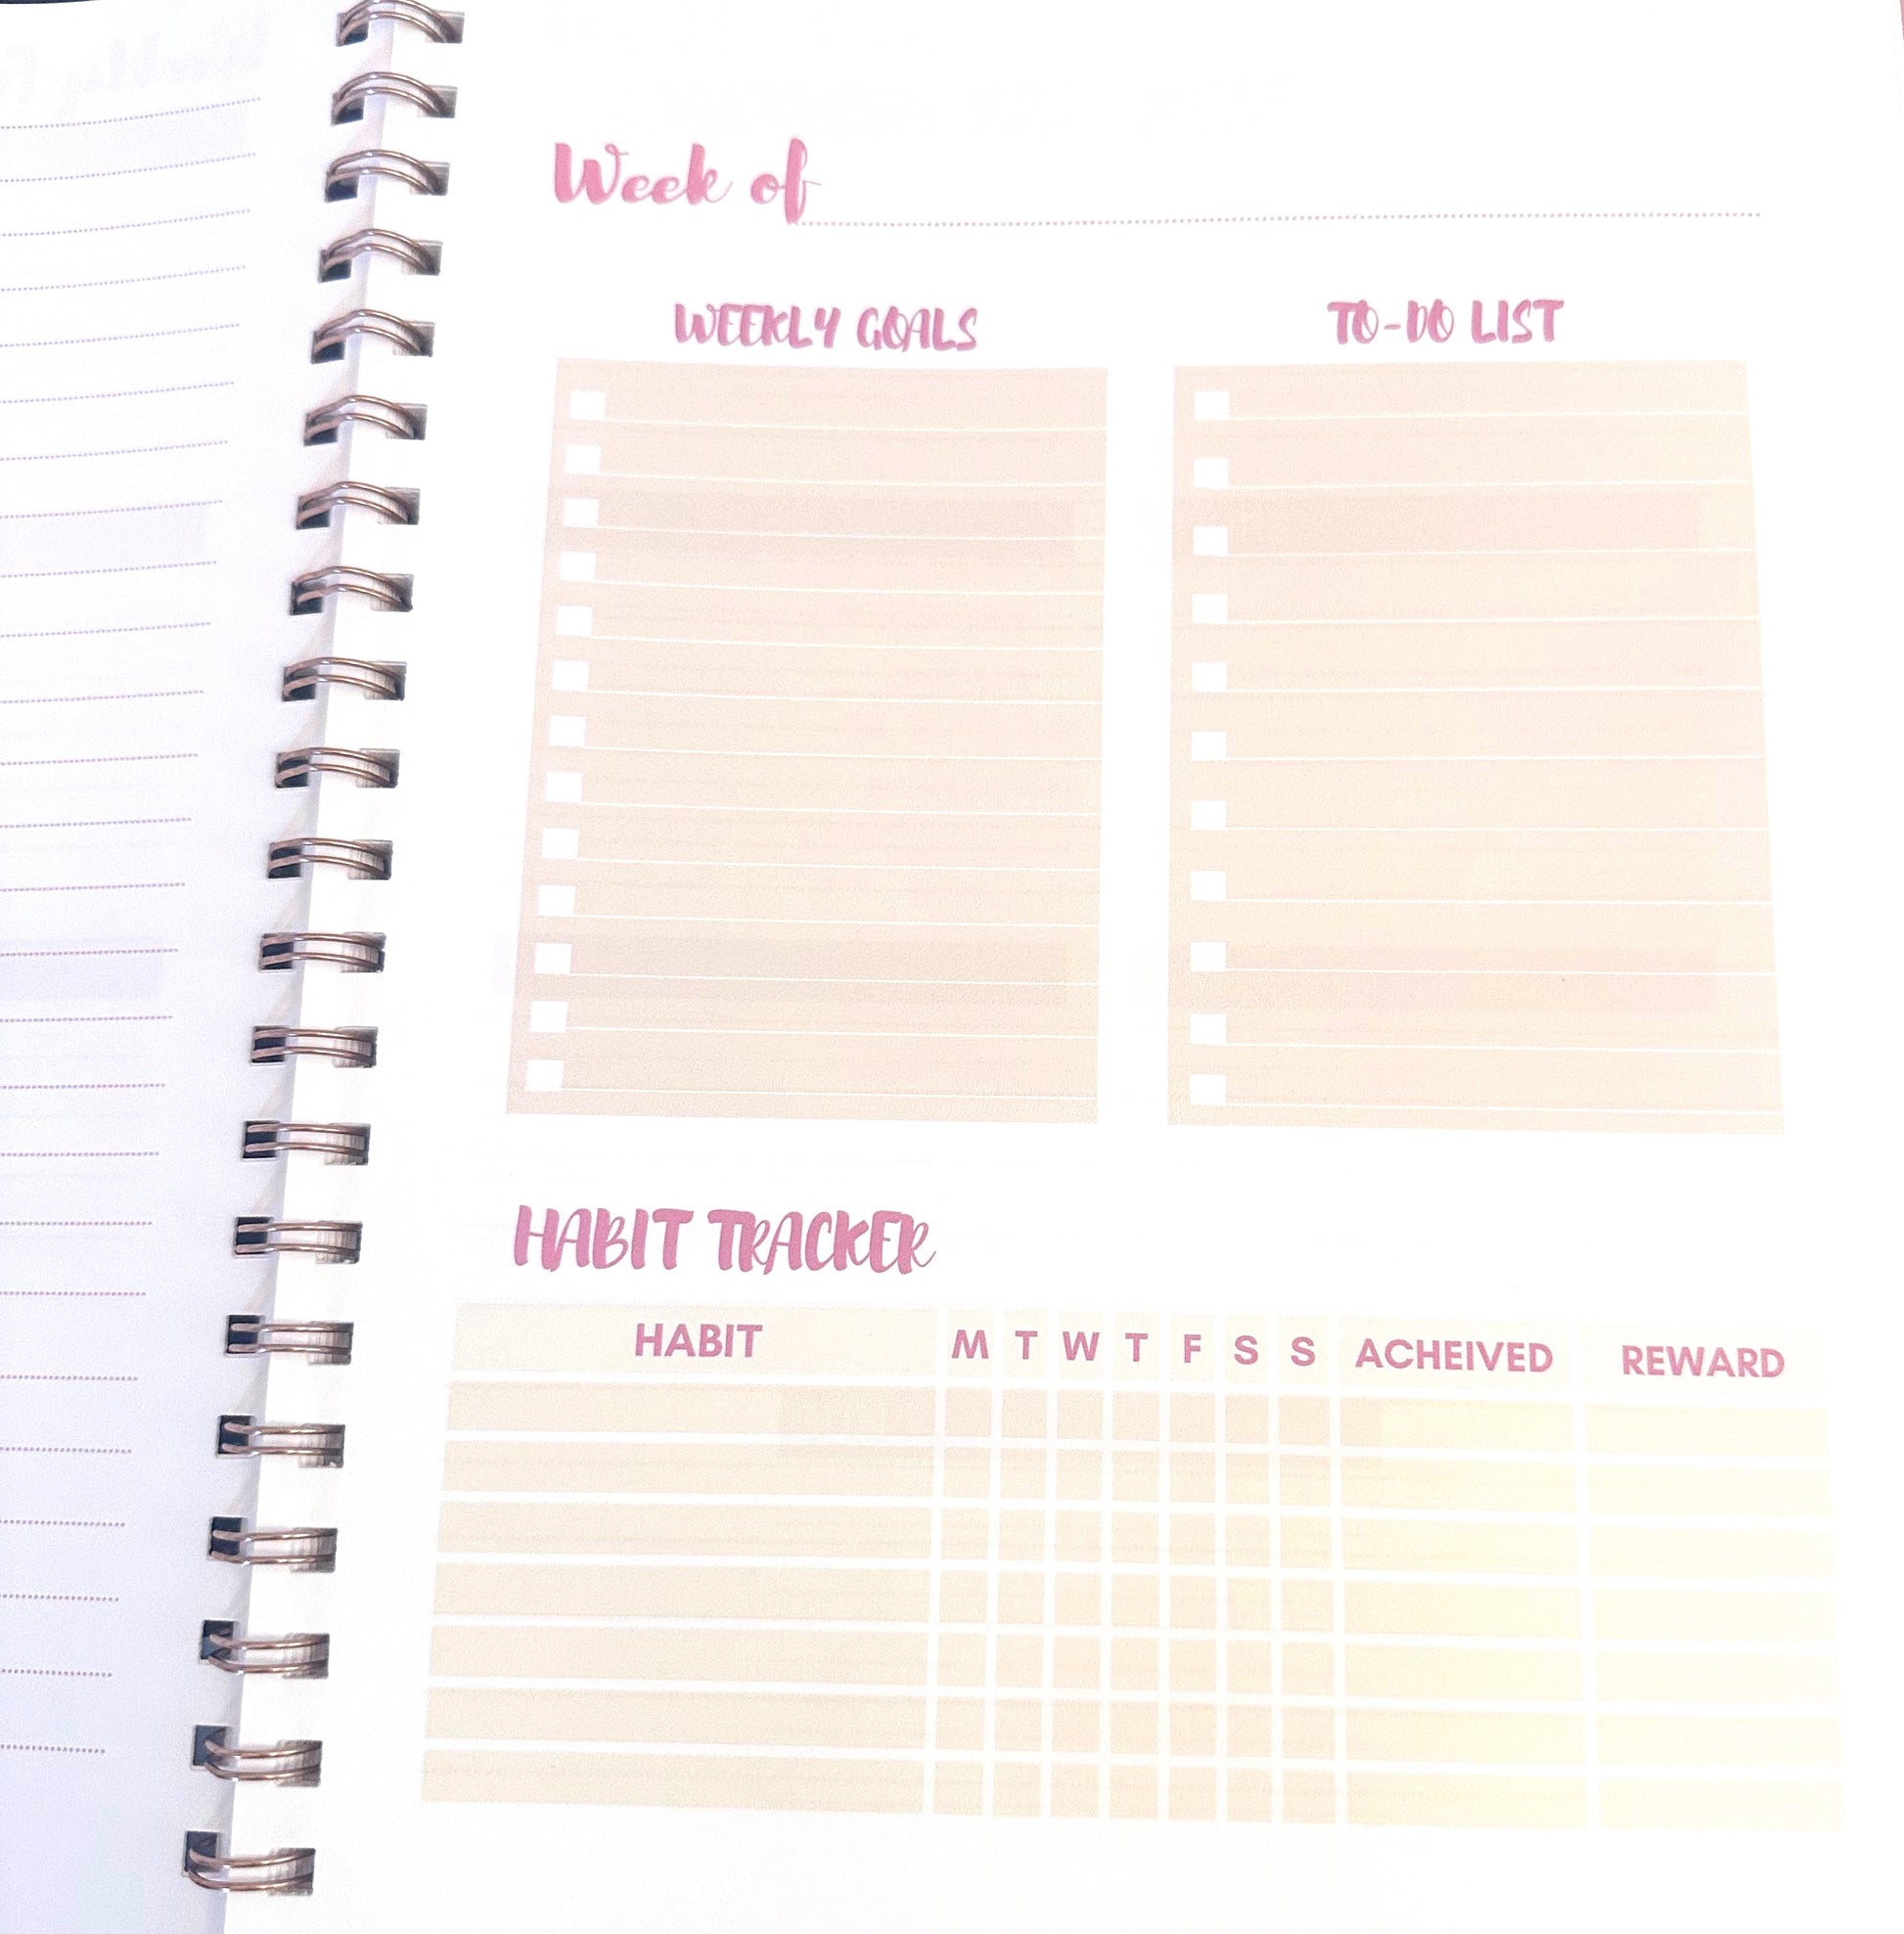 Week of
WEEKLY GOALS
TO-DO LIST
HABIT TRACKER
HABIT M T W T F S S ACHEIVED REWARD